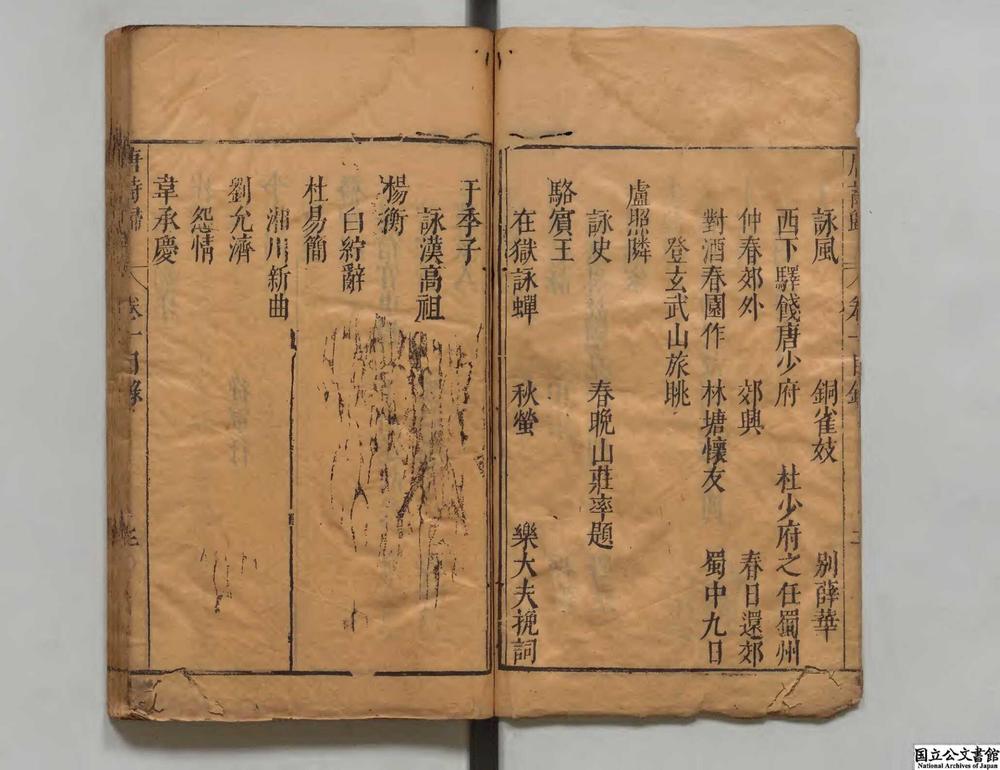 詠風 銅雀妓 別薛華
西下驛餞唐少府 杜少府之任蜀州
仲春郊外 郊興 春日還郊
對酒春園作 林塘懷友 蜀中九日
登玄武山旅眺
盧照隣
詠史 春晚山莊率題
駱賓王
在獄詠蟬 秋螢 樂大夫挽詞
于季子
詠漢高祖
楊衡
白紵辭
杜易簡
湘川新曲
劉允濟
怨情
韋承慶
唐詩歸 卷一目錄
国立公文書館
National Archives of Japan